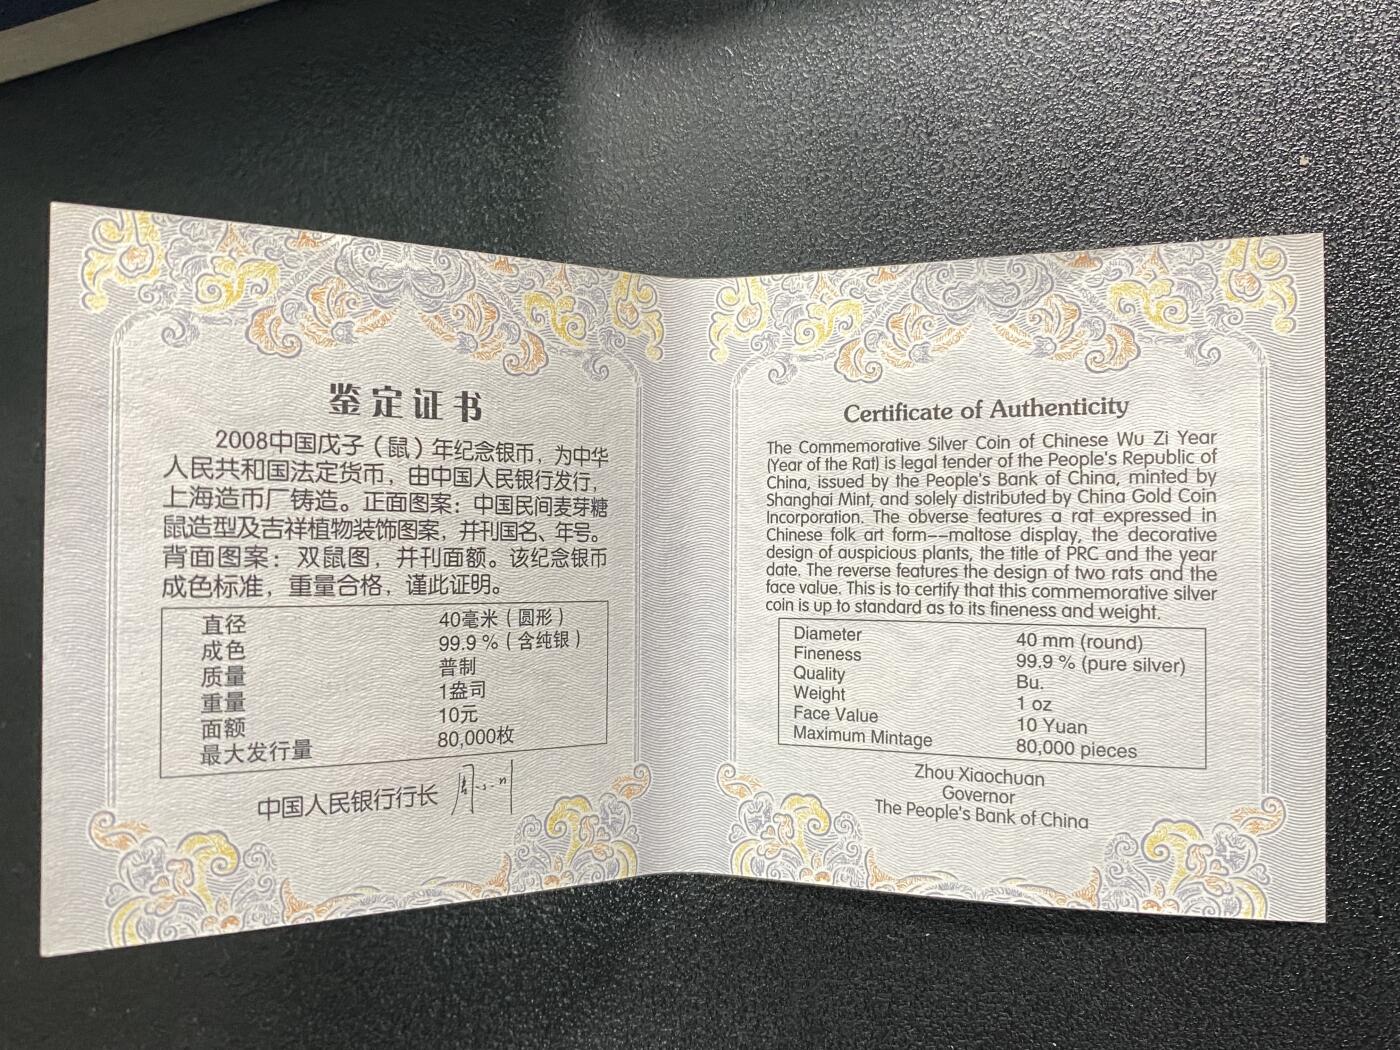 鉴定证书
2008中国戊子（鼠）年纪念银币，为中华
人民共和国法定货币，由中国人民银行发行，
上海造币厂铸造。正面图案：中国民间麦芽糖
鼠造型及吉祥植物装饰图案，并刊国名、年号。
背面图案：双鼠图，并刊面额。该纪念银币
成色标准，重量合格，谨此证明。
直径 40毫米（圆形）
成色 99.9％（含纯银）
质量 普制
重量 1盎司
面额 10元
最大发行量 80,000枚
中国人民银行行长
Certificate of Authenticity
The Commemorative Silver Coin of Chinese Wu Zi Year
(Year of the Rat) is legal tender of the People's Republic of
China, issued by the People's Bank of China, minted by
Shanghai Mint, and solely distributed by China Gold Coin
Incorporation. The obverse features a rat expressed in
Chinese folk art form--maltose display, the decorative
design of auspicious plants, the title of PRC and the year
date. The reverse features the design of two rats and the
face value. This is to certify that this commemorative silver
coin is up to standard as to its fineness and weight.
Diameter 40 mm (round)
Fineness 99.9 % (pure silver)
Quality Bu.
Weight 1 oz
Face Value 10 Yuan
Maximum Mintage 80,000 pieces
Zhou Xiaochuan
Governor
The People's Bank of China